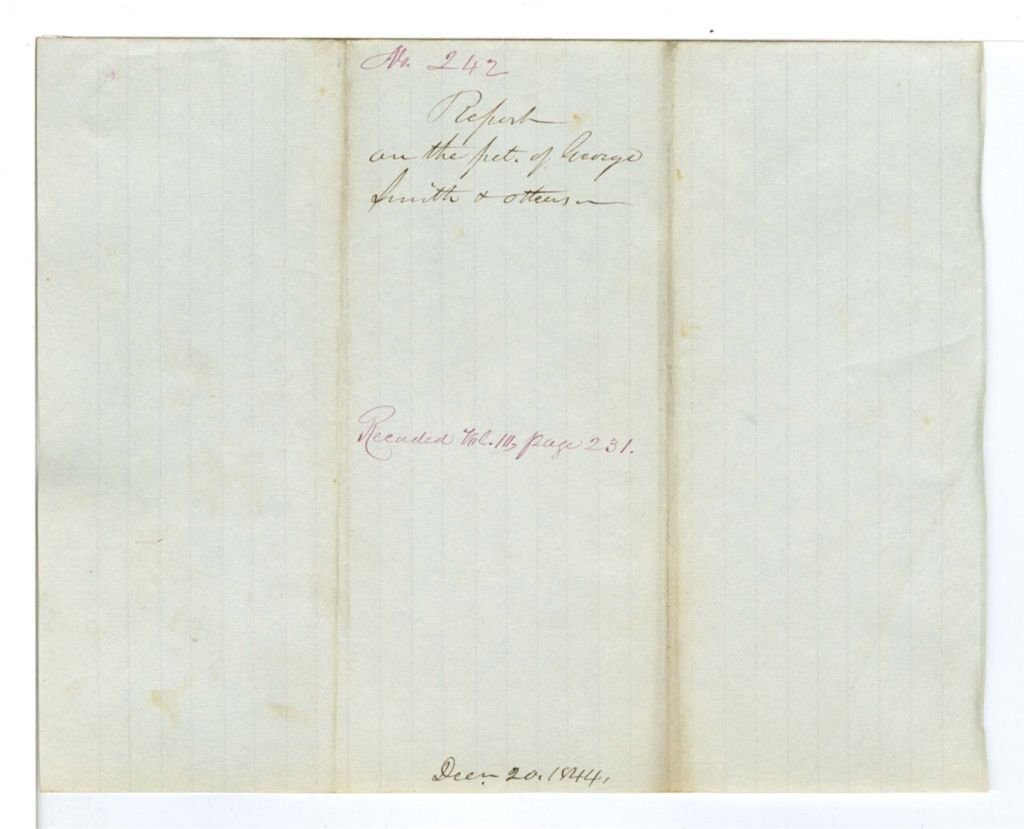 No. 242
Report
on the pet. of George
Smith & others
Recorded Vol. 10, page 231.
Decr. 20. 1844.